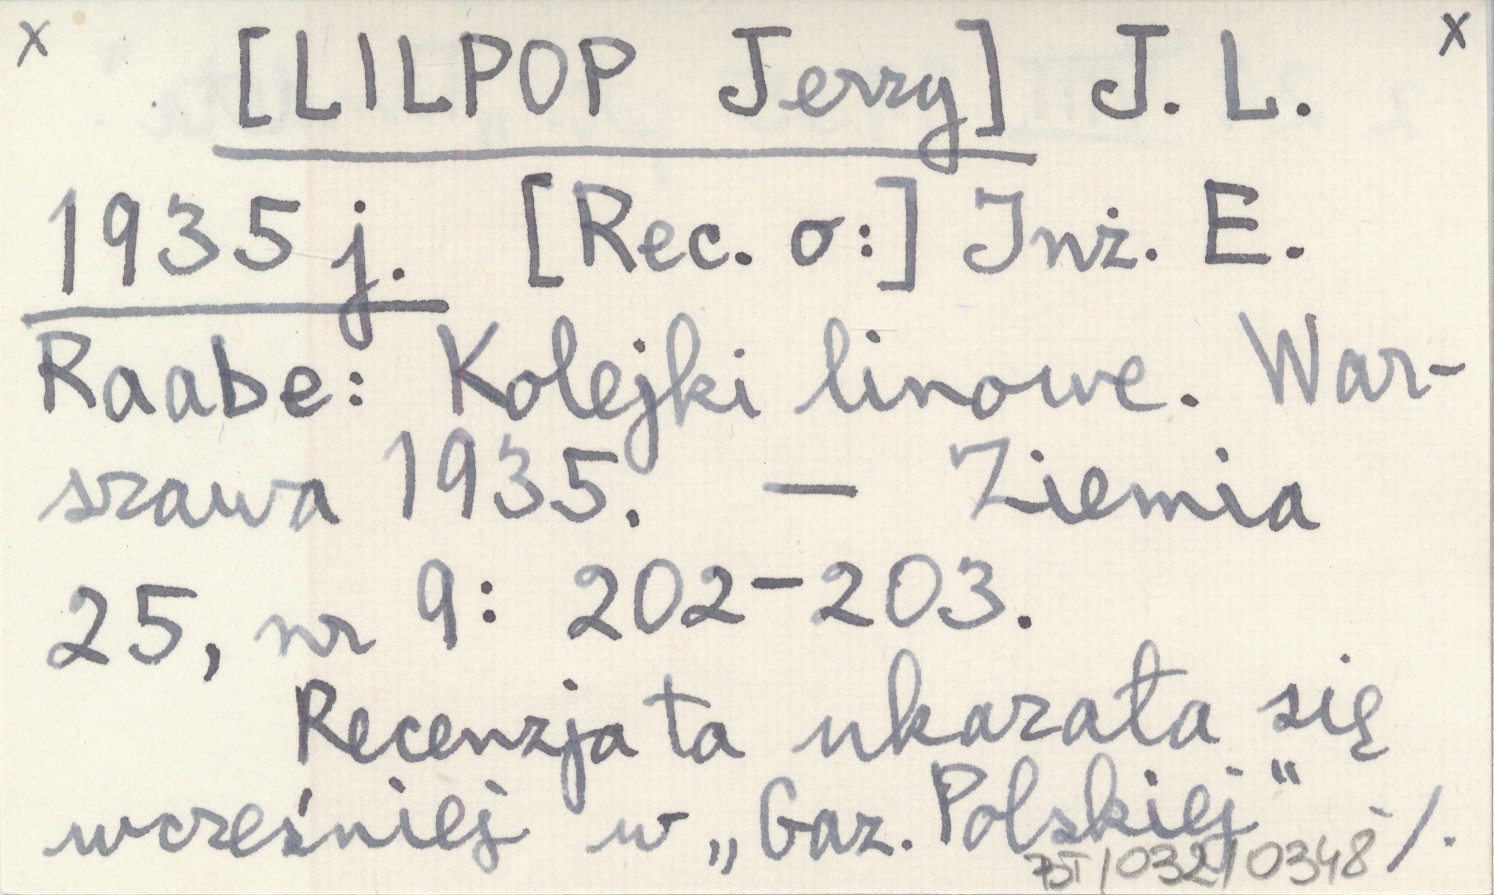 x [LILPOP Jerzy] J. L. x
1935 j. [Rec. o:] Inż. E.
Raabe: Kolejki linowe. War-
szawa 1935. — Ziemia
25, nr 9: 202-203.
Recenzja ta ukazała się
wcześniej w „Gaz. Polskiej" ./.
/032/0348